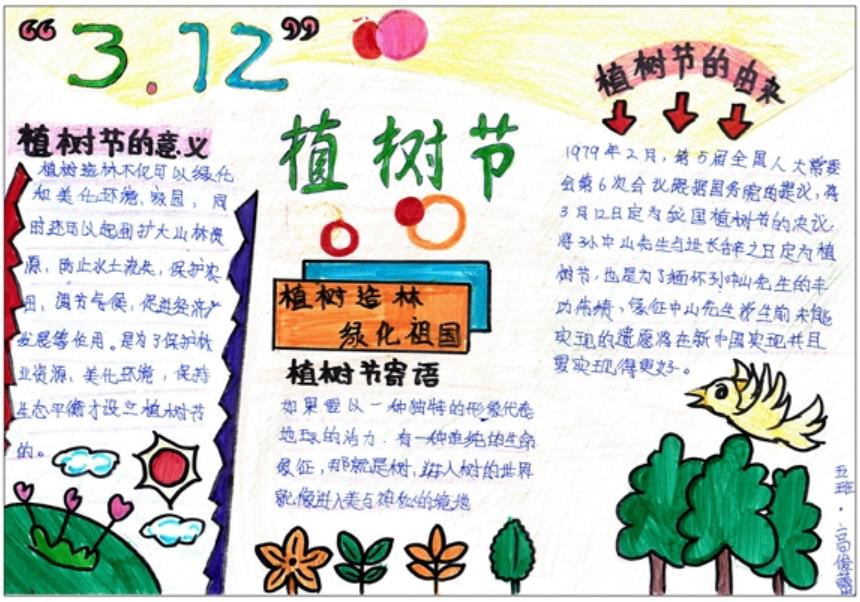 “3.12”
植树节
植树节的意义
植树造林不仅可以绿化
和美化环境、家园，同
时还可以起到扩大山林资
源、防止水土流失，保护农
田、调节气候，促进经济
发展等作用。是为了保护林
业资源、美化环境，保持
生态平衡才设立植树节
的。
植树造林
绿化祖国
植树节寄语
如果要以一种独特的形象代表
地球的活力，有一种单纯的生命
象征，那就是树，进入树的世界
就像进入美与神秘的境地
植树节的由来
1979年2月，第5届全国人大常委
会第6次会议根据国务院的提议，将
3月12日定为我国植树节的决议
将孙中山先生与世长辞之日定为植
树节，也是为了缅怀孙中山先生的丰
功伟绩，象征中山先生 生前未能
实现的遗愿将在新中国实现并且
要实现得更好。
五班·高俊